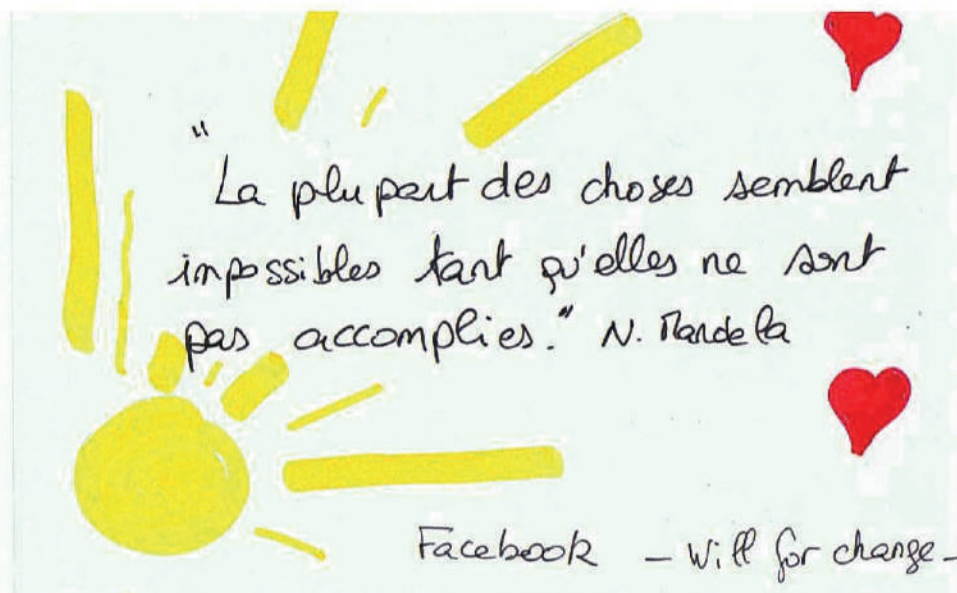 "La plupart des choses semblent
impossibles tant qu'elles ne sont
pas accomplies." N. Mandela
Facebook - Will for change -